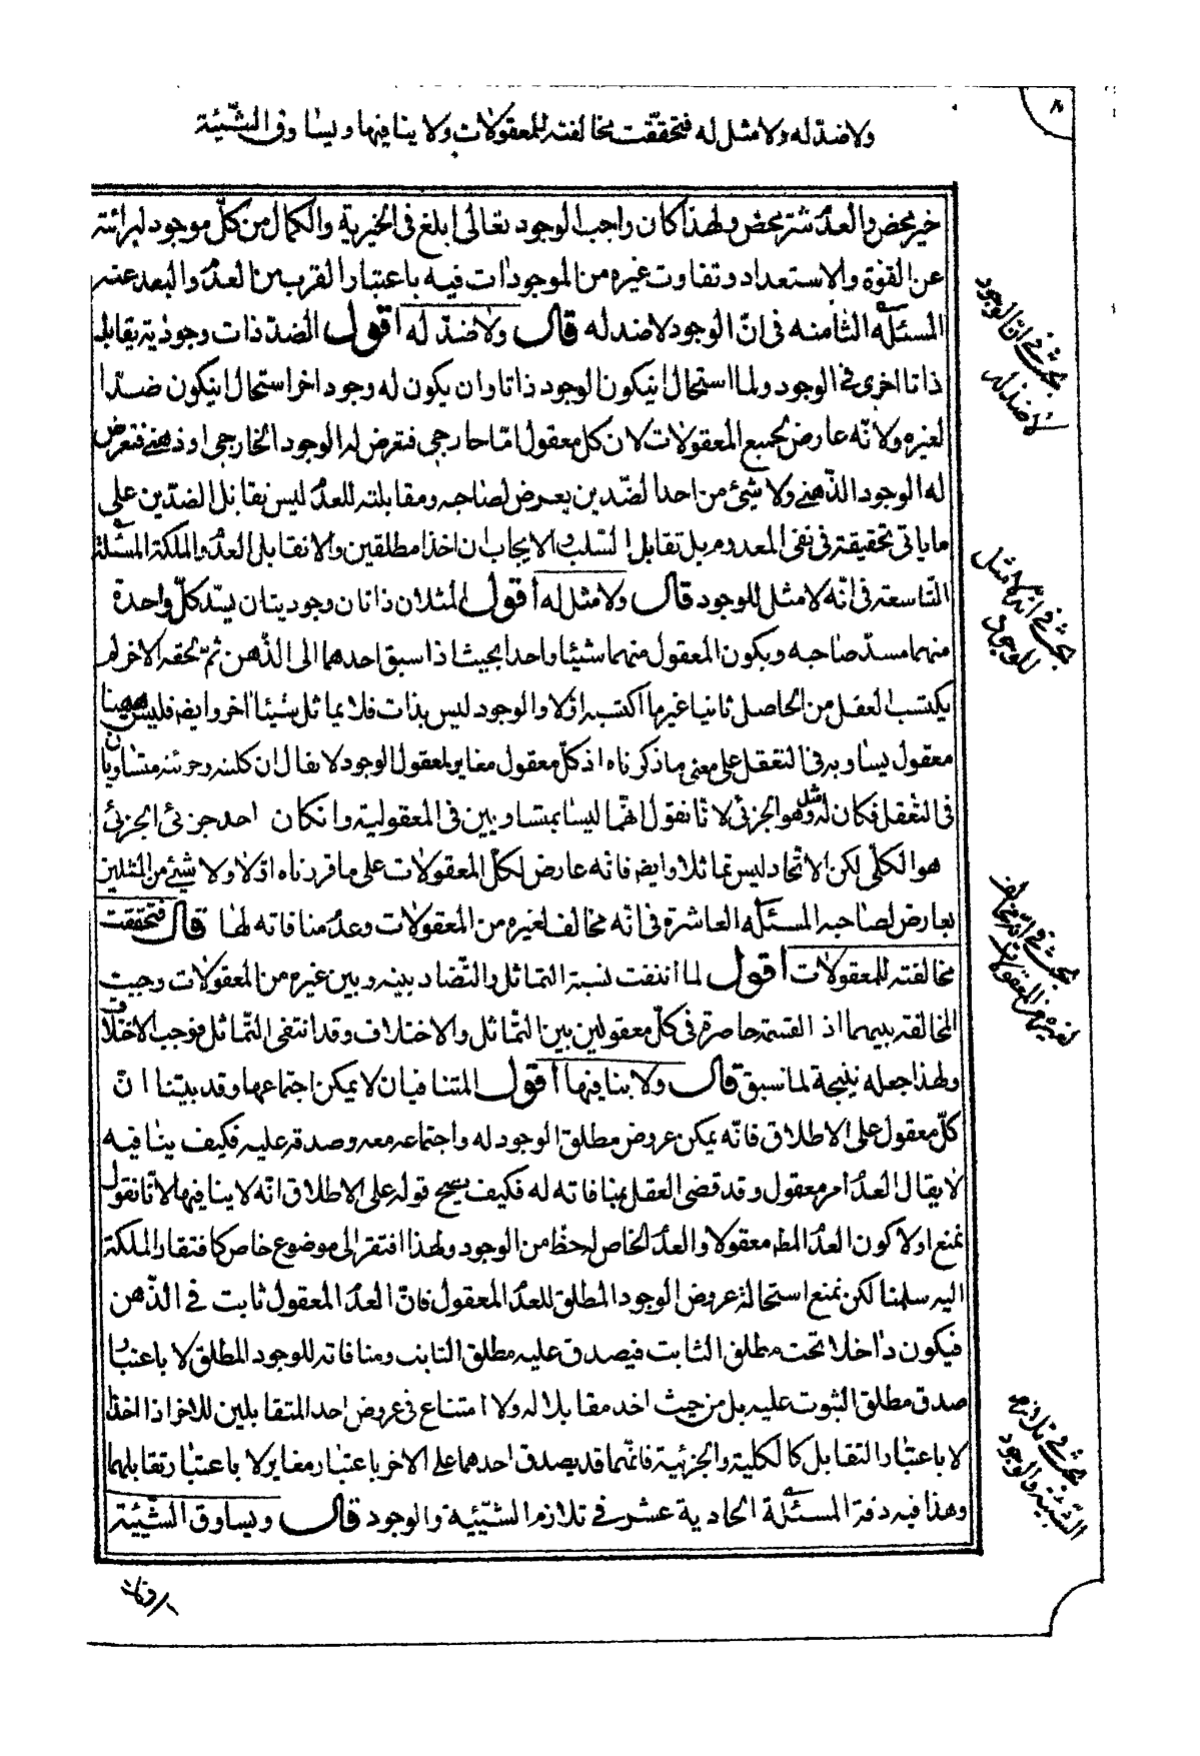 ٨
ولا ضدّ له ولا مثل له فتحققت مخالفته للمعقولات ولا ينافيها ويساوق الشّيئيّة
خير محض والعدم شرّ محض ولهذا كان واجب الوجود تعالى ابلغ فى الخيرية والكمال من كلّ موجود لبرائته
عن القوّة والاستعداد وتفاوت غيره من الموجودات فيه باعتبار القرب من العدم والبعد عنه
المسئلة الثامنه فى انّ الوجود لا ضد له قال ولا ضدّ له اقول الضدّ ذات وجوديّة يقابله
ذاتا اخرى فى الوجود ولما استحال ان يكون الوجود ذاتا وان يكون له وجود اخر استحال ان يكون ضدّا
لغيره ولانّه عارض لجميع المعقولات لان كل معقول امّا خارجى فتعرض له الوجود الخارجى او ذهنى فتعرض
له الوجود الذّهنى ولا شئ من احد الضّدين يعرض لصاحبه ومقابلته للعدم ليس تقابل الضدّين على
ما ياتى تحقيقه فى نفى المعدوم بل تقابل السّلب والايجاب ان اخذا مطلقين والا تقابل العدم والملكة المسئلة
التّاسعة فى انّه لا مثل للوجود قال ولا مثل له اقول المثلان ذاتان وجوديتان يسدّ كلّ واحدة
منهما مسدّ صاحبه ويكون المعقول منهما شيئا واحدا بحيث اذا سبق احدهما الى الذّهن ثمّ لحقه الاخر لم
يكتسب العقل من الحاصل ثانيا غير ما اكتسبه اوّلا والوجود ليس بذات فلا يماثل شيئا اخر وايضه فليس ههنا
معقول يساويه فى التعقل على معنى ما ذكرناه اذ كلّ معقول مغاير لمعقول الوجود لا يقال ان كليه وجزئيه متساويان
فى التعقل فكان له مثل وهو الجزئى لانّا نقول انّهما ليسا بمتساويين فى المعقولية وان كان احد جزئى الجزئى
هو الكلّى لكن الاتّحاد ليس تماثلا وايضه فانّه عارض لكلّ المعقولات على ما قررناه اوّلا ولا شئ من المثلين
بعارض لصاحبه المسئلة العاشرة فى انّه مخالف لغيره من المعقولات وعدم منافاته لها قال فتحققت
مخالفته للمعقولات اقول لما انتفت نسبة التماثل والتّضاد بينه وبين غيره من المعقولات وجبت
المخالفة بينهما اذ القسمة حاصرة فى كلّ معقولين بين التّماثل والاختلاف وقد انتفى التّماثل فوجب الاختلاف
ولهذا جعله نتيجة لما سبق قال ولا ينافيها اقول المتنافيان لا يمكن اجتماعهما وقد بيّنّا انّ
كلّ معقول على الاطلاق فانّه يمكن عروض مطلق الوجود له واجتماعه معه وصدقه عليه فكيف ينافيه
لا يقال العدم امر معقول وقد قضى العقل بمنافاته له فكيف يصح قوله على الاطلاق انّه لا ينافيها لانّا نقول
نمنع اولا كون العدم المطه معقولا والعدم الخاص له حظّ من الوجود ولهذا افتقر الى موضوع خاص كافتقار الملكة
اليه سلمنا لكن نمنع استحالة عروض الوجود المطلق للعدم المعقول فانّ العدم المعقول ثابت فى الذّهن
فيكون داخلا تحت مطلق الثابت فيصدق عليه مطلق الثابت ومنافاته للوجود المطلق لا باعتبار
صدق مطلق الثبوت عليه بل من حيث اخذ مقابلا له ولا امتناع فى عروض احد المتقابلين للاخر اذا اخذا
لا باعتبار التقابل كالكلية والجزئية فانّهما قد يصدق احدهما على الاخر باعتبار مغاير لا باعتبار تقابلهما
وهذا فيه دقة المسئلة الحادية عشر فى تلازم الشيّئية والوجود قال ويساوق الشّيئيّة
بحث فى انّ الوجود
لا ضد له
بحث فى انه لا مثل
للوجود
بحث فى انّه مخالف
لغيره من المعقولات
بحث فى تلازم
الشّيئيّة والوجود